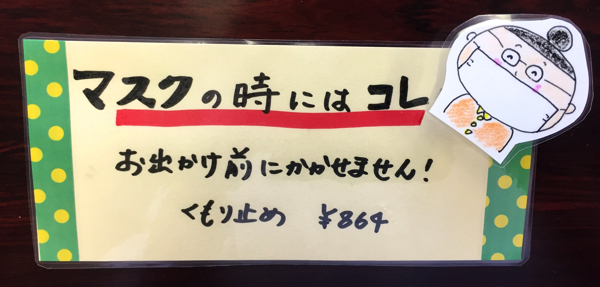 マスクの時にはコレ
お出かけ前にかかせません!
くもり止め ¥864